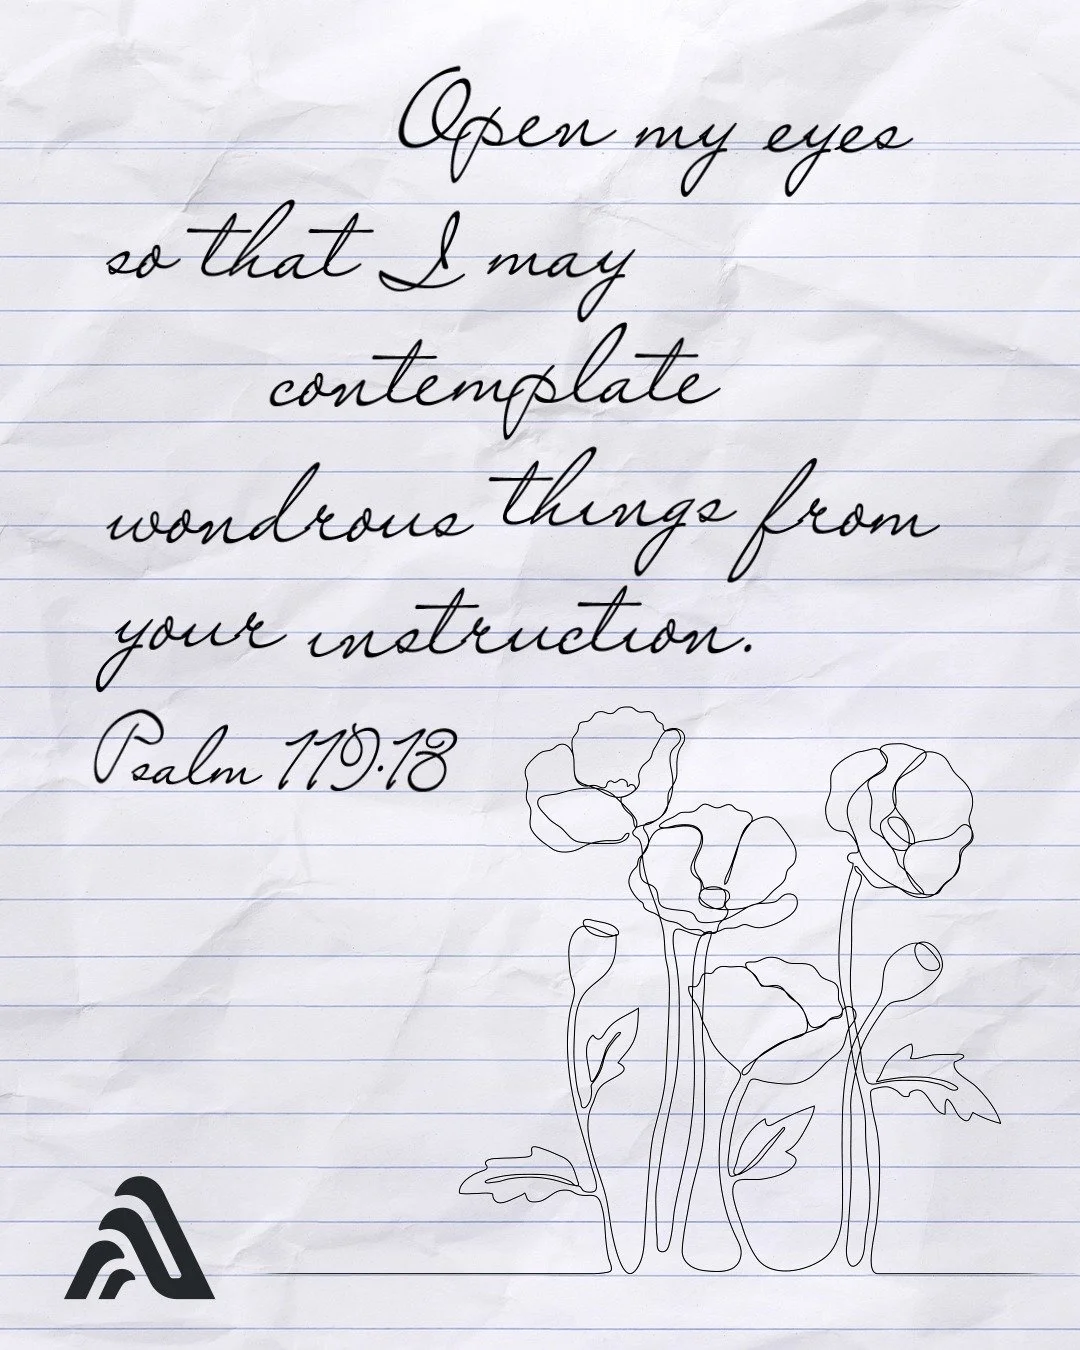 Open my eyes
so that I may
contemplate
wondrous things from
your instruction.
Psalm 119:18